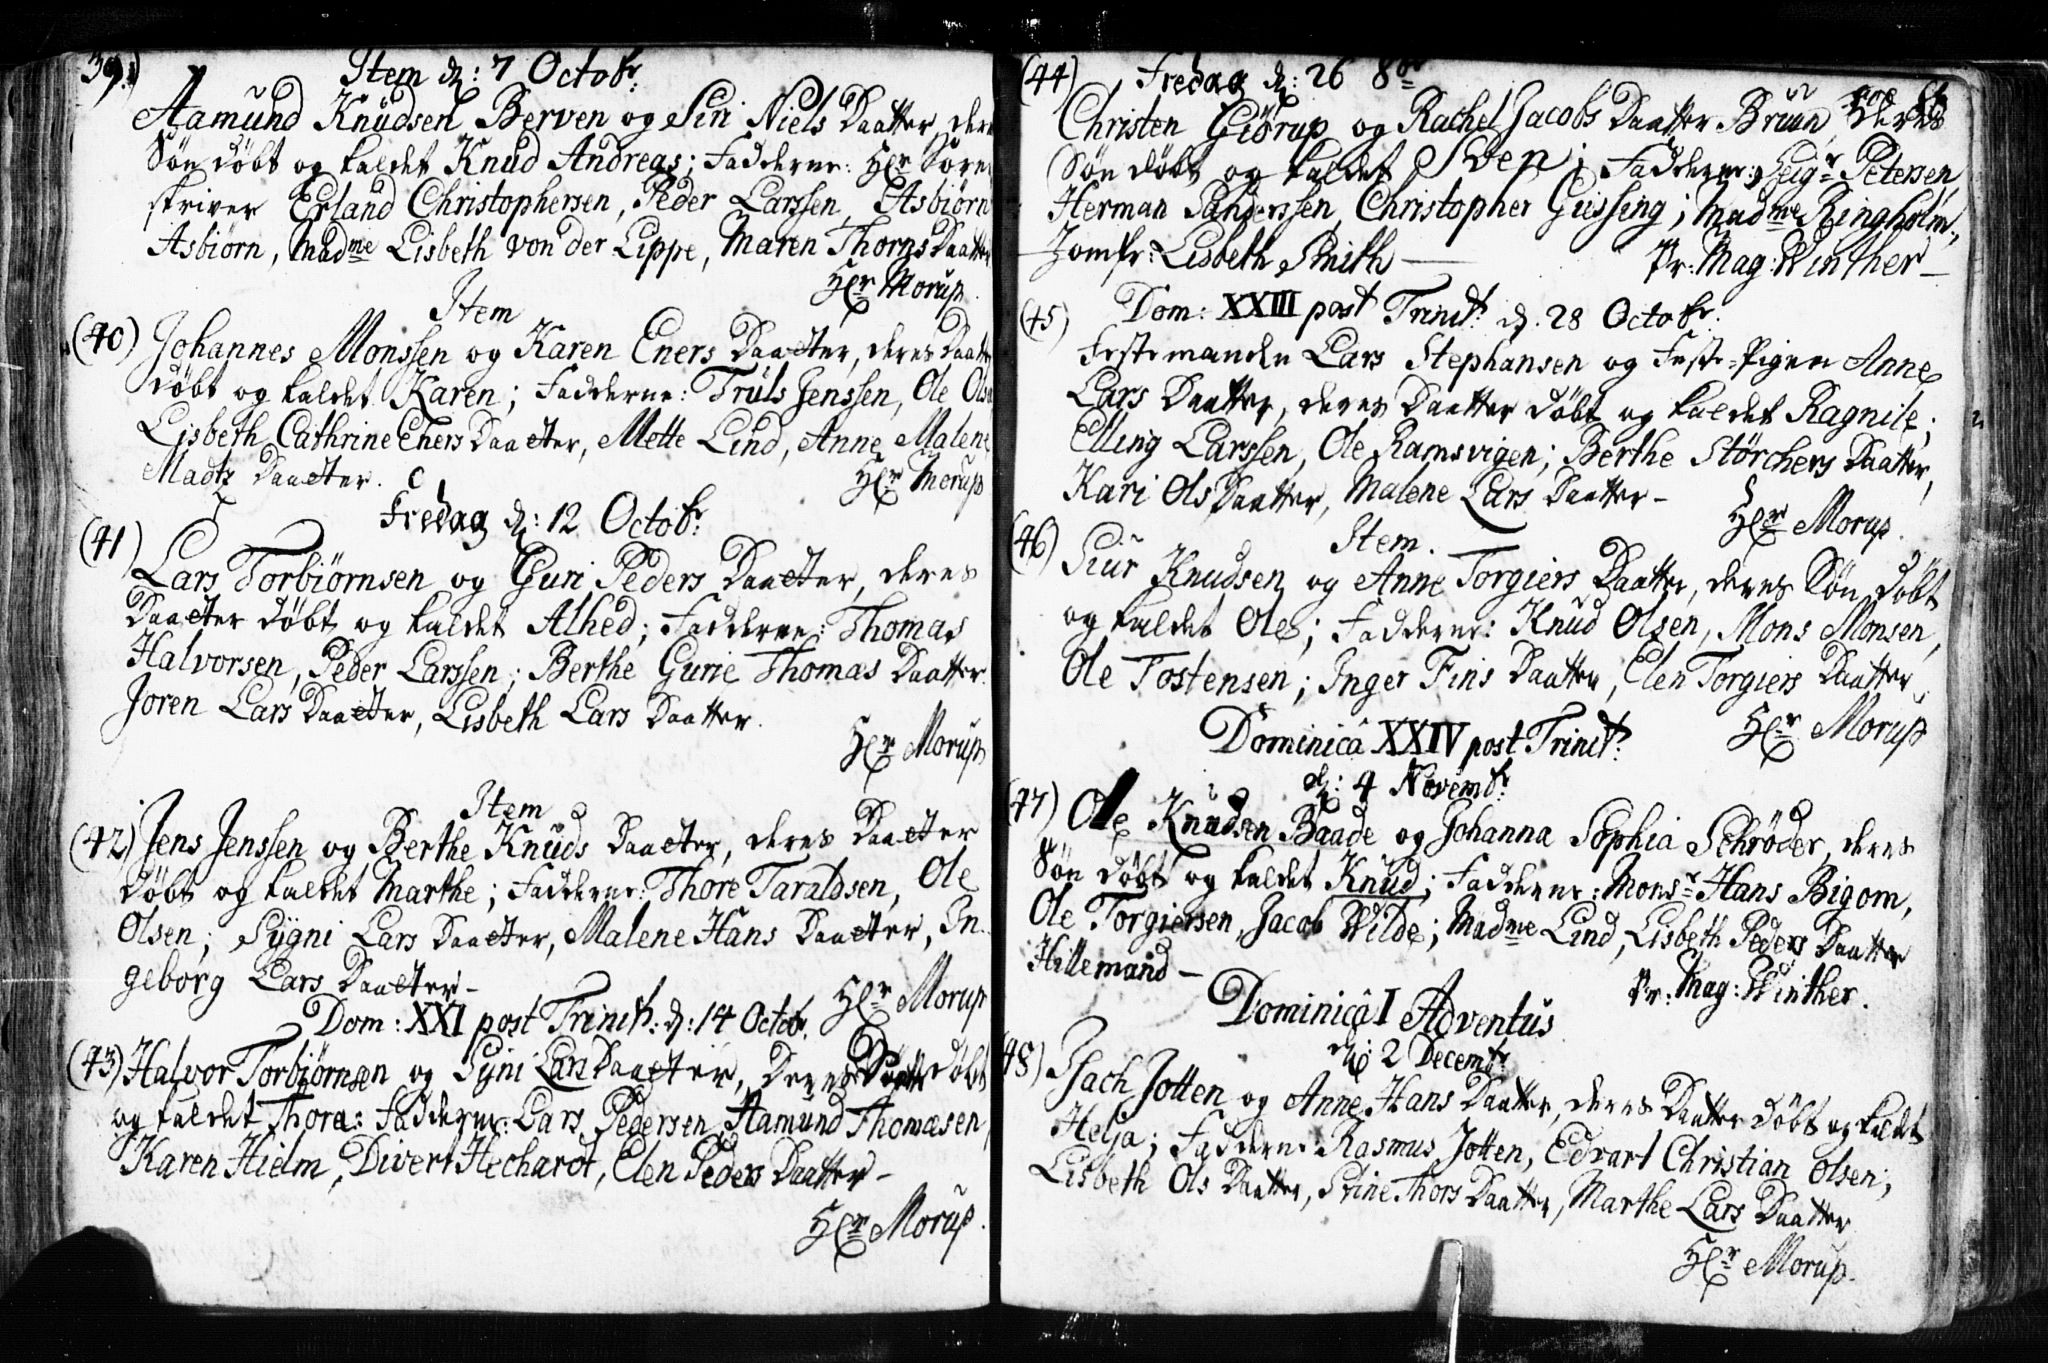 39.) Item d: 7 Octobr:
Aamund Knudsen Berven og Siri Niels Daatter, deres
Søn døbt og kaldet Knud Andreas; Fadderne: Hr Soren
skriver Erland Christophersen, Peder Larssen, Asbiørn
Asbiørn, Madme Lisbeth von der Lippe, Maren Thorns Daatter
Hr Morup.
Item
(40) Johannes Monssen og Karen Eners Daatter, deres Daatter
døbt og kaldet Karen; Fadderne: Truls Jenssen, Ole Olsen
Lisbeth Cathrine Eners Daatter, Mette Lind, Anne Malene
Madtz Daatter. Hr Morup
Fredag d: 12 Octobr:
(41) Lars Torbiørnsen og Guri Peders Daatter, deres
Daatter døbt og kaldet Alhed; Fadderne: Thomas
Halvorsen, Peder Larssen; Berthe Gurie Thomas Daatter.
Joren Lars Daatter, Lisbeth Lars Daatter.
Hr Morup
Item
(42) Jens Jenssen og Berthe Knuds Daatter, deres Daatter
døbt og kaldet Marthe; Fadderne: Thore Taraldsen, Ole
Olsen; Sygni Lars Daatter, Malene Hans Daatter, In-
geborg Lars Daatter- Hr Morup
Dom: XXI post Trinit: d: 14 Octobr.
(43) Halvor Torbiørnsen og Syni Lars Daatter, Deres døbt
og kaldet Thora: Fadderne: Lars Pedersen, Aamund Thomæsen,
Karen Hielm, Divert Hechardt, Elen Peders Daatter-
Hr Morup.
(44) Fredag d: 26 8br
Christen Giørup og Rachel Jacobs Daatter Bruun, Deres
Søn døbt og kaldet Sven; Fadderne: Seigr Petersen,
Herman Sanderssen, Christopher Giessing; Madme Ringholm,
Jomfr: Lisbeth Smith — Pr: Mag: Winther —
(45) Dom: XXIII post Trinit: d. 28 Octobr:
Festemanden Lars Stephansen og Feste-Pigen Anne
Lars Daatter, deres Daatter døbt og kaldet Ragnile;
Elling Larssen, Ole Ramsvigen; Berthe Størchers Daatter,
Kari Ols Daatter, Malene Lars Daatter-
Hr Morup.
Item.
(46) Siur Knudsen og Anne Torgiers Daatter, deres Søn døbt
og kaldet Ole; Fadderne: Knud Olsen, Mons Monsen,
Ole Tostensen; Inger Fins Daatter, Elen Torgiers Daatter
Hr Morup
Dominicâ XXIV post Trinit:
d: 4 Novembr:
(47) Ole Knudsen Baade og Johanna Sophia Schrøder, deres
Søn døbt og kaldet Knud; Fadderne: Monsr Hans Bigom,
Ole Torgiersen, Jacob Wilde; Madme Lind, Lisbeth Peders Daatter
Hillemand — Pr: Mag: Winther.
Dominicâ I Adventus
d: 2 Decembr
48) Isach Jotten og Anne Hans Daatter, deres Daatter døbt og kaldet
Helja; Fadderne: Rasmus Jotten, Edvart Christian Olsen;
Lisbeth Ols Daatter, Stine Thors Daatter, Marthe Lars Daatter
Hr Morup.